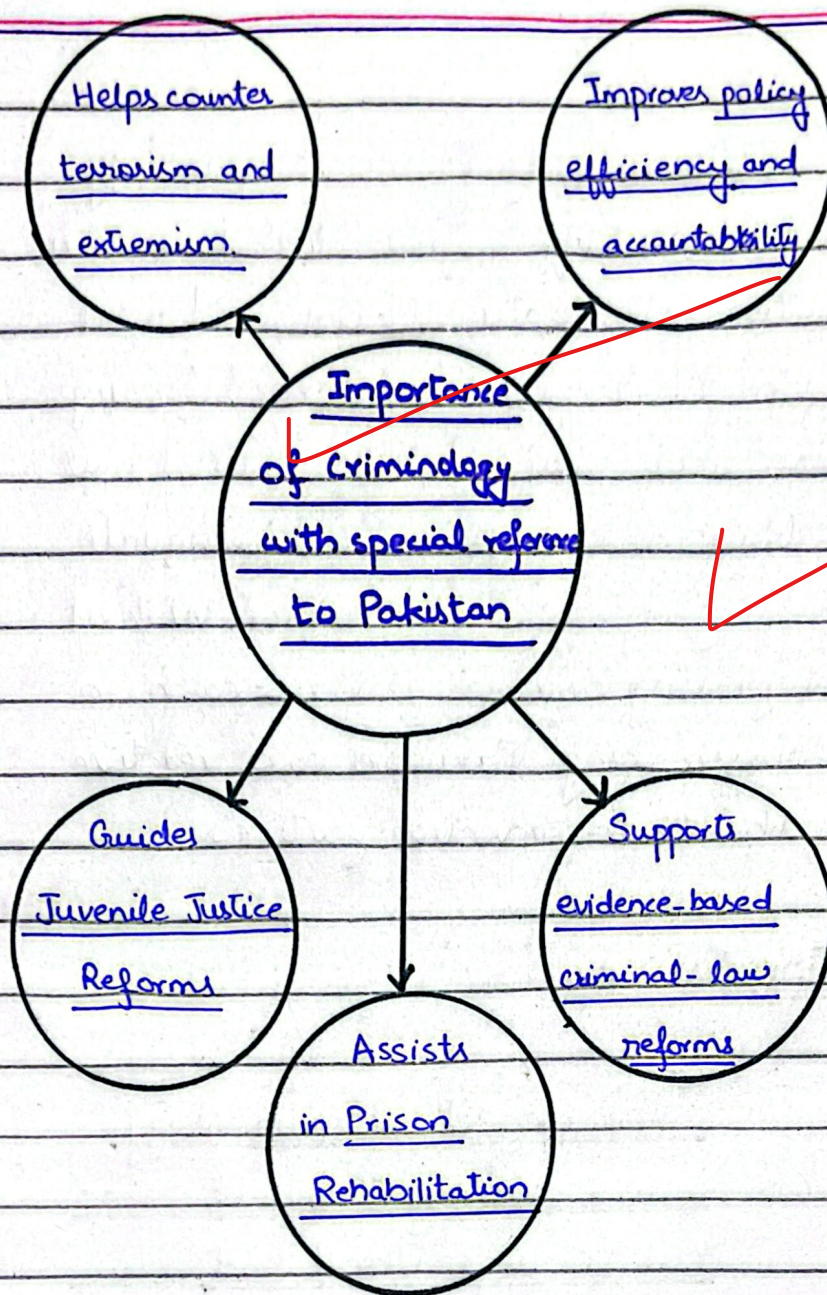 Helps counter
terrorism and
extremism.
Improves policy
efficiency and
accountability
Importance
of Criminology
with special reference
to Pakistan
Guides
Juvenile Justice
Reforms
Supports
evidence-based
criminal-law
reforms
Assists
in Prison
Rehabilitation